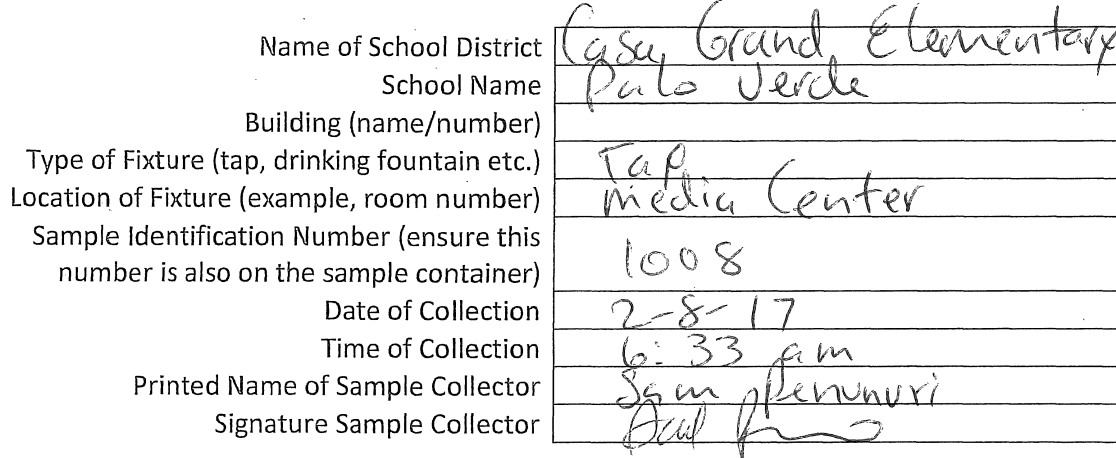 Name of School District Casa Grand Elementary
School Name Palo Verde
Building (name/number)
Type of Fixture (tap, drinking fountain etc.) Tap
Location of Fixture (example, room number) media Center
Sample Identification Number (ensure this
number is also on the sample container) 1008
Date of Collection 2-8-17
Time of Collection 6:33 am
Printed Name of Sample Collector Sam Penunuri
Signature Sample Collector